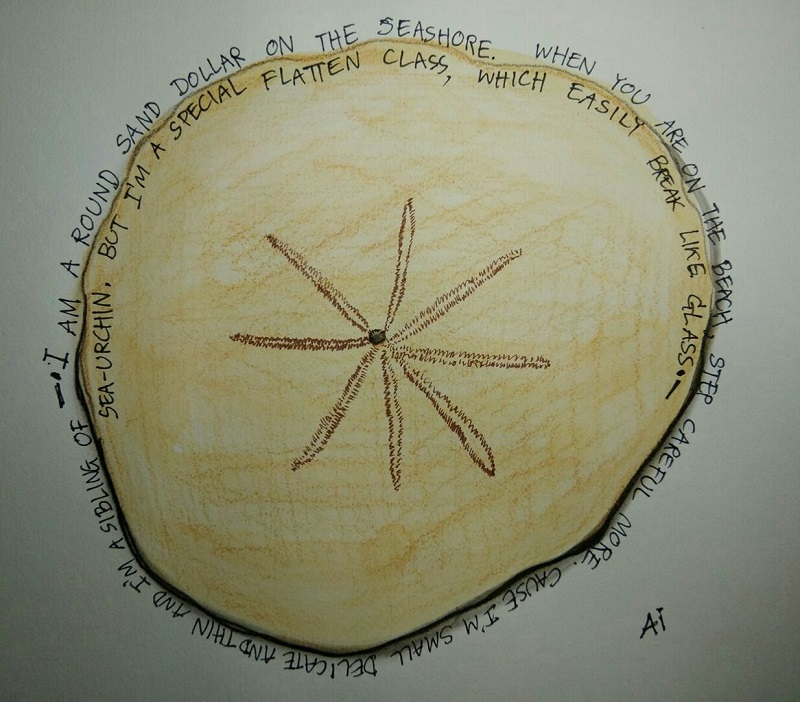 I AM A ROUND SAND DOLLAR ON THE SEASHORE. WHEN YOU ARE ON THE BEACH, STEP CAREFUL MORE. CAUSE I'M SMALL DELICATE AND THIN AND I'M A SIBLING OF
SEA-URCHIN. BUT I'M A SPECIAL FLATTEN CLASS, WHICH EASILY BREAK LIKE GLASS.
Ai